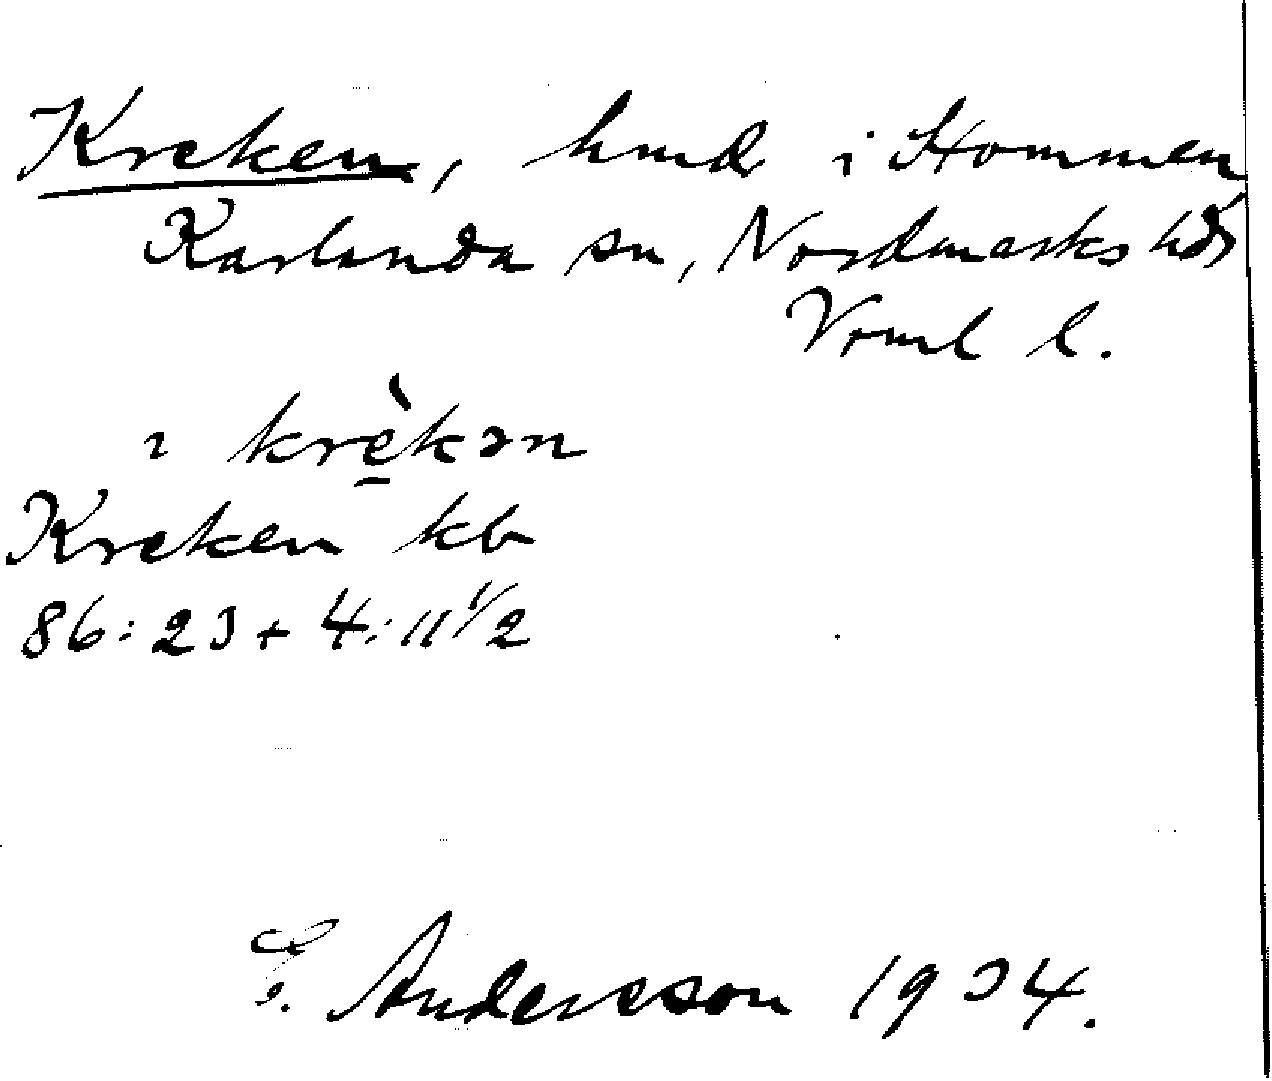 Kreken, hmd i Stommen
Karlanda sn, Nordmarks hd
Vrml l.
i krè̱kən
Kreken kb
86:23 + 4:11 1/2
G. Andersson 1934.